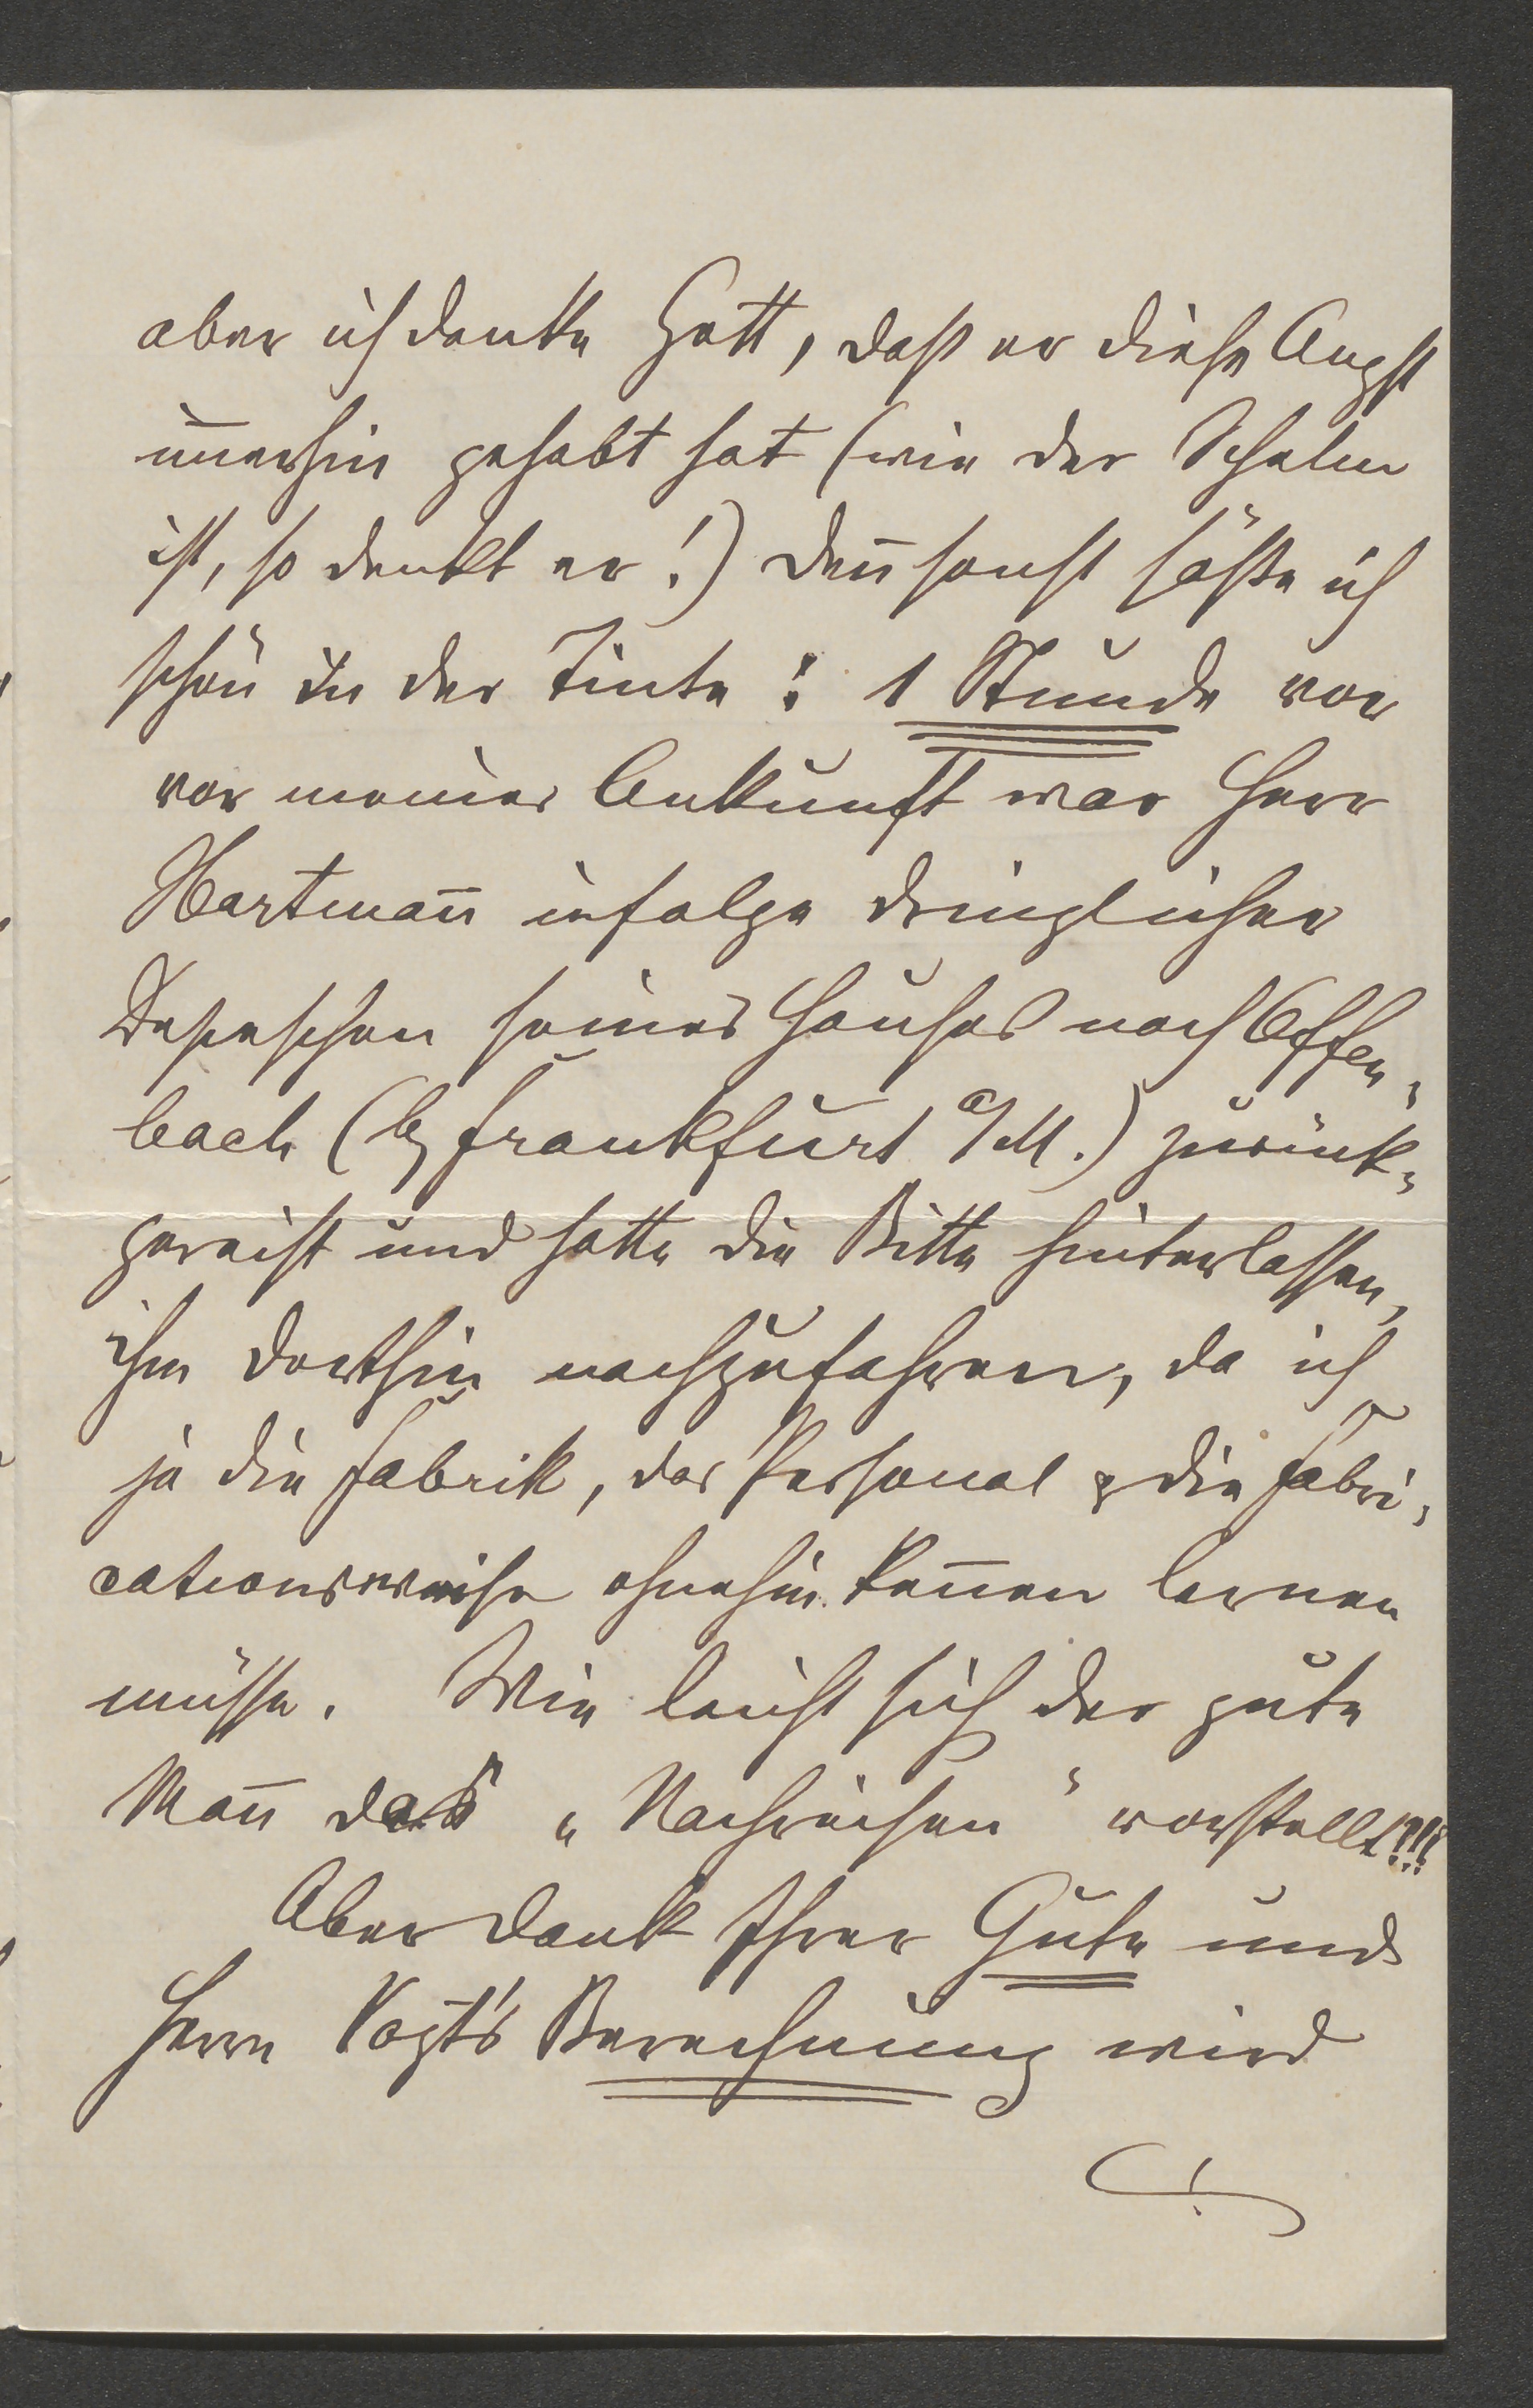 aber ich danke Gott, daß er diese Angst
im̅erhin gehabt hat (wie der Schelm
ist, so denkt er!) den̅ sonst säße ich
schön in der Tinte: 1 Stunde vor
vor meiner Ankunft war Herr
Hartman̅ infolge dringlicher
Depeschen seines Hauses nach Offen-
bach (b/ Frankfurt a/M.) zurück-
gereist und hatte die Bitte hinterlassen,
ihm dorthin nachzufahren, da ich
ja die Fabrik, das Personal & die Fabri-
cationsweise ohnehin ken̅en lernen
müsse. Wie leicht sich der gute
Man̅ das „Nachreisen“ vorstellt!!!
Aber Dank Ihrer Güte und
Herrn Vogt's Berechnung wird